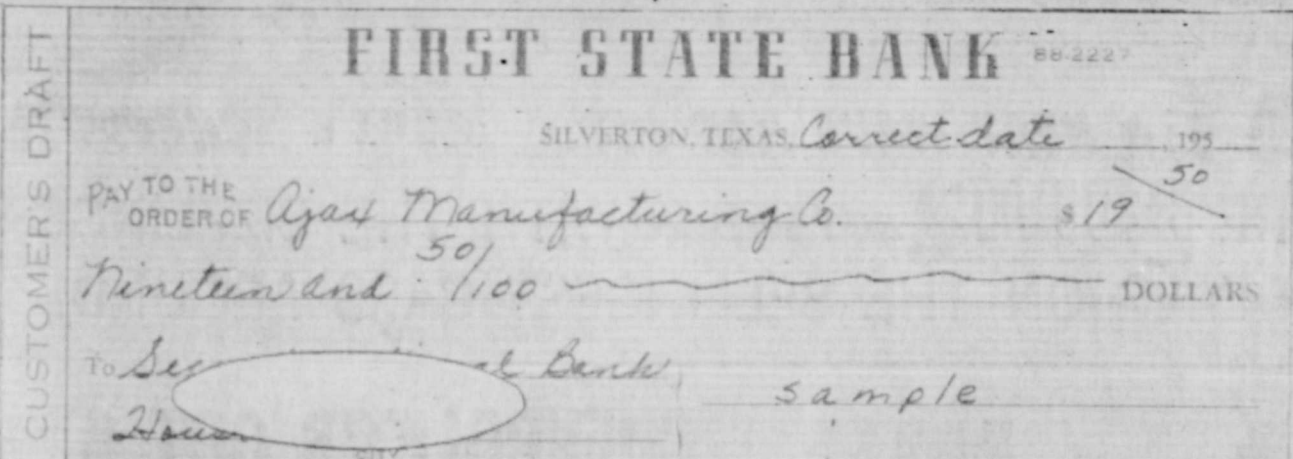 CUSTOMER'S DRAFT
FIRST STATE BANK 88-2227
SILVERTON, TEXAS, Correct date 195
PAY TO THE ORDER OF Ajax Manufacturing Co. $ 19 50
Nineteen and 50/100 DOLLARS
To Bank
sample